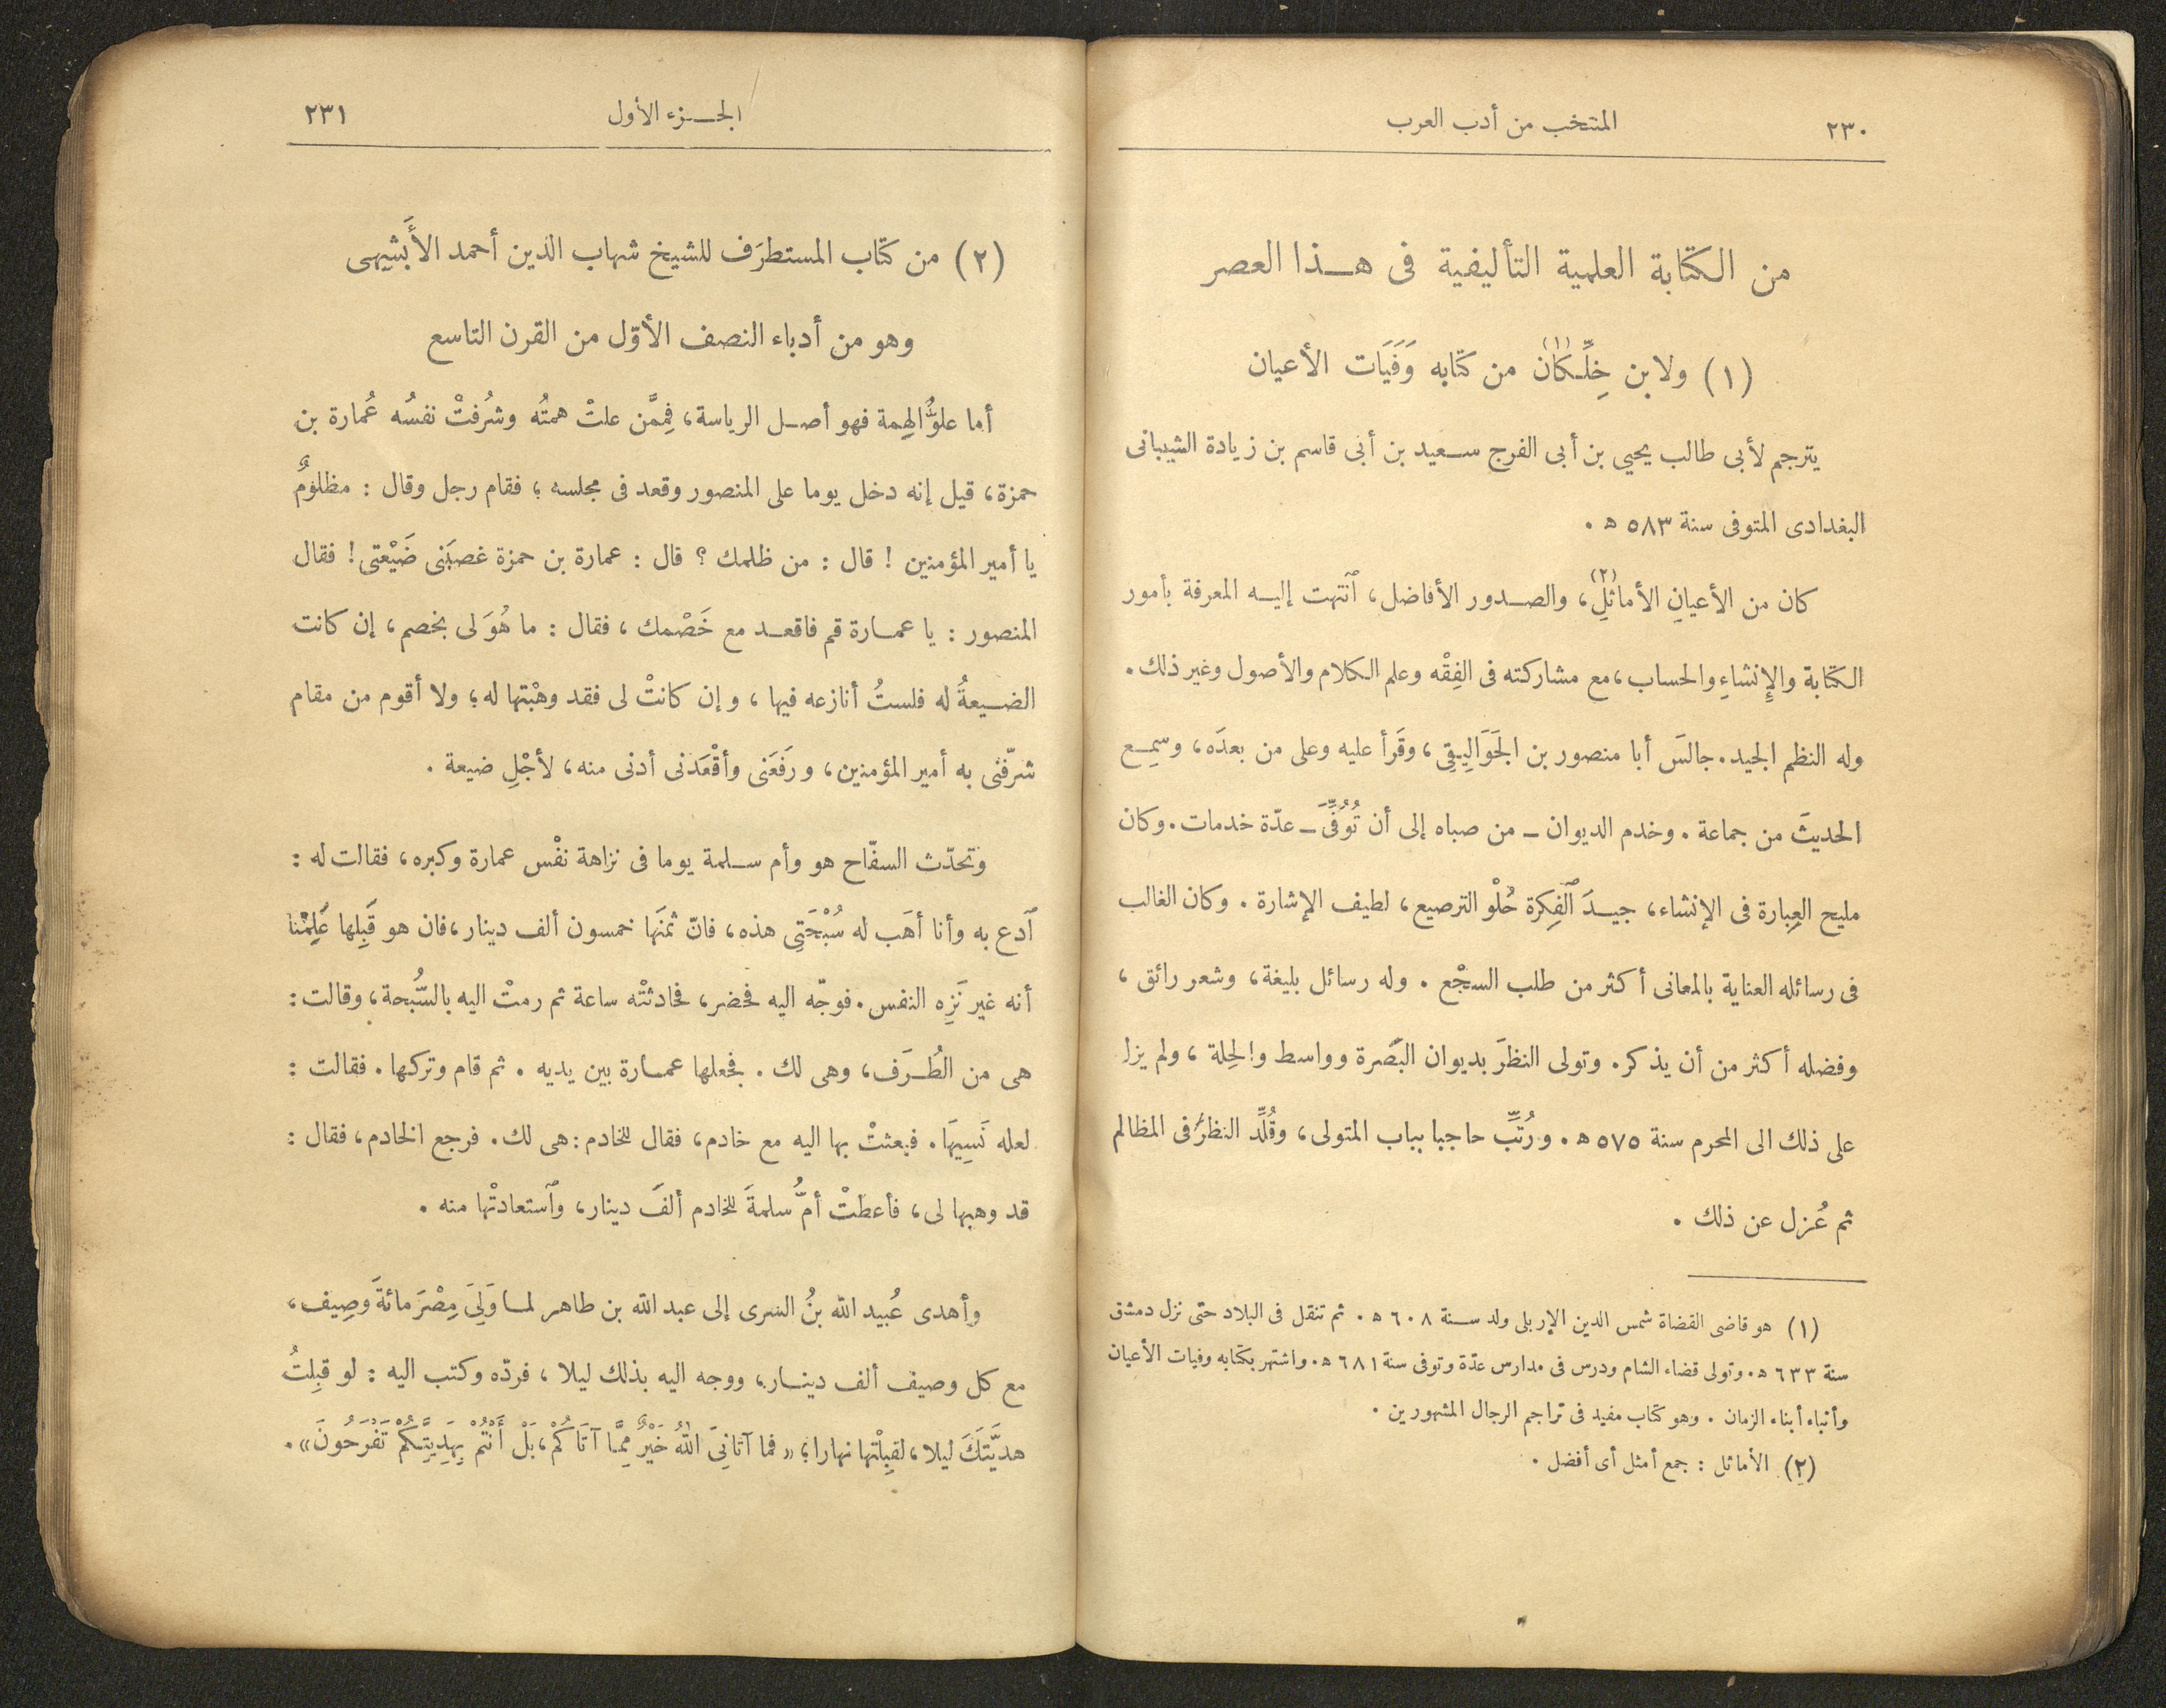 ٢٣٠
المنتخب من أدب العرب
من الكتابة العلمية التأليفية فى هـذا العصر
(١) ولابن خِلِّـكان(١) من كتابه وَفَيَات الأعيان
يترجم لأبى طالب يحيى بن أبى الفرج سـعيد بن أبى قاسم بن زيادة الشيبانى
البغدادى المتوفى سنة ٥٨٣ ه .
كان من الأعيانِ الأماثلِ(٢)، والصـدور الأفاضل، ٱنتهت إليـه المعرفة بأمور
الكتابة والإِنشاءِ والحساب، مع مشاركته فى الفِقْه وعلم الكلام والأصول وغير ذلك.
وله النظم الجيد. جالسَ أبا منصور بن الجَوَالِيقِى، وقَرأ عليه وعلى من بعدَه، وسمِـع
الحديثَ من جماعة . وخدم الديوان ـ من صباه إلى أن تُوُفِّىَ ـ عدّة خدمات. وكان
مليح العِبارة فى الإنشاء، جيـدَ ٱلفِكرة حُلْو الترصيع، لطيف الإشارة . وكان الغالب
فى رسائله العناية بالمعانى أكثر من طلب السجْع . وله رسائل بليغة، وشعر رائق،
وفضله أكثر من أن يذكر. وتولى النظرَ بديوان البَصْرة وواسط والحِلة، ولم يزل
على ذلك الى المحرم سنة ٥٧٥ ه . ورُتِّب حاجبا بباب المتولى، وقُلِّد النظرَ فى المظالم
ثم عُزل عن ذلك .
(١) هو قاضى القضاة شمس الدين الإربلى ولد سـنة ٦٠٨ ه . ثم تنقل فى البلاد حتى نزل دمشق
سنة ٦٣٣ ه . وتولى قضاء الشام ودرس فى مدارس عدّة وتوفى سنة ٦٨١ ه . واشتهر بكتابه وفيات الأعيان
وأنباء أبناء الزمان . وهو كتاب مفيد فى تراجم الرجال المشهورين .
(٢) الأماثل : جمع أمثل أى أفضل .
الجـزء الأول
٢٣١
(٢) من كتاب المستطرَف للشيخ شهاب الدين أحمد الأَبشيهى
وهو من أدباء النصف الأوّل من القرن التاسع
أما علوُّ الهِمة فهو أصـل الرياسة، فِممَّن علتْ همتُه وشرُفتْ نفسُه عُمارة بن
حمزة، قيل إنه دخل يوما على المنصور وقعد فى مجلسه؛ فقام رجل وقال : مظلومٌ
يا أمير المؤمنين ! قال : من ظلمك ؟ قال : عمارة بن حمزة غصبَنى ضَيْعتى! فقال
المنصور : يا عمـارة قم فاقعـد مع خَصْمك، فقال : ما هُوَ لى بخصم، إن كانت
الضـيعةُ له فلستُ أنازعه فيها، وإن كانتْ لى فقد وهبْتها له؛ ولا أقوم من مقام
شرّفنى به أمير المؤمنين، ورَفَعَنى وأقْعَدَنى أدنى منه، لأجْلِ ضيعة .
وتحدّث السفّاح هو وأم سـلمة يوما فى نزاهة نفْس عمارة وكبره، فقالت له :
ٱدع به وأنا أهَب له سُبْحَتِى هذه، فانّ ثمنَها خمسون ألف دينار، فان هو قَبِلها عَلِمْنا
أنه غير نَزِه النفس. فوجّه اليه فحضر، فحادثتْه ساعة ثم رمتْ اليه بالسُّبحة، وقالت :
هى من الطُـرَف، وهى لك . فجعلها عمـارة بين يديه . ثم قام وتركها . فقالت :
لعله نَسِيهَا. فبعثتْ بها اليه مع خادم، فقال للخادم : هى لك. فرجع الخادم، فقال :
قد وهبها لى، فأعطتْ أمُّ سلمةَ للخادم ألفَ دينار، وٱستعادتْها منه .
وأهدى عُبيد الله بنُ السرى إلى عبد الله بن طاهر لمـا وَلِىَ مِصْرَ مائةَ وصِيف،
مع كل وصيف ألف دينـار، ووجه اليه بذلك ليلا، فردّه وكتب اليه : لو قبِلتُ
هديَّتَكَ ليلا، لقبِلْتها نهارا؛ «فما آتانِىَ اللهُ خَيْرٌ مِمَّا آتَاكُمْ، بَلْ أَنْتُمْ بِهَدِيَّتِكُمْ تَفْرَحُونَ» .